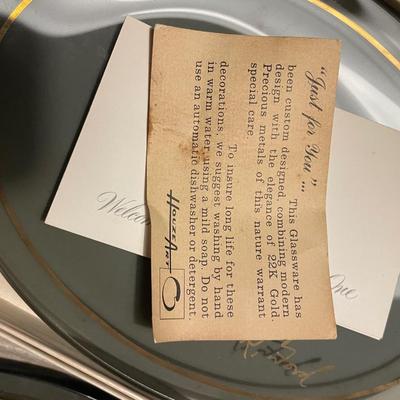 "Just for You"... This Glassware has
been custom designed, combining modern
design with the elegance of 22K Gold.
Precious metals of this nature warrant
special care.
To insure long life for these
decorations, we suggest washing by hand
in warm water, using a mild soap. Do not
use an automatic dishwasher or detergent.
HOUZEART